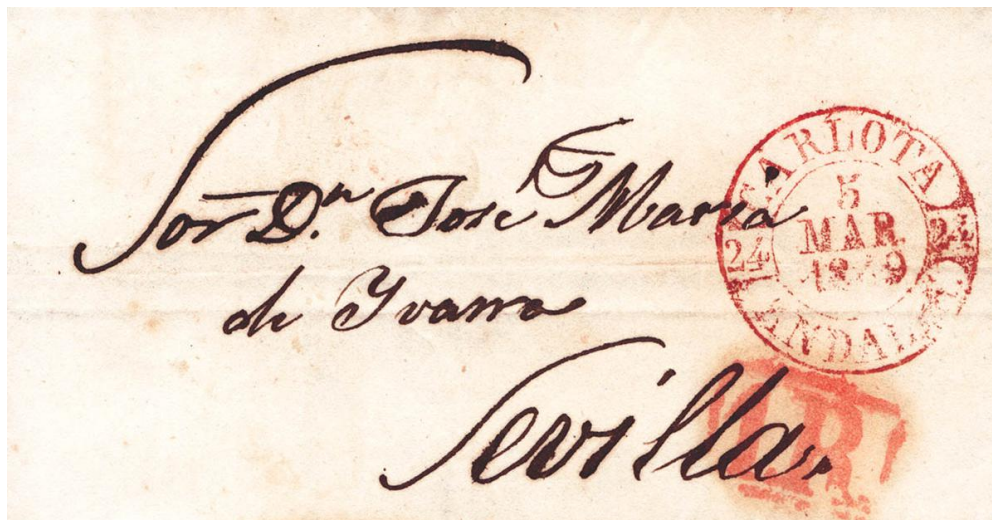 Sor. Dn. Jose Maria
de Yvarra
Sevilla.
CARLOTA
5
MAR
1849
24
24
ANDAL
1R